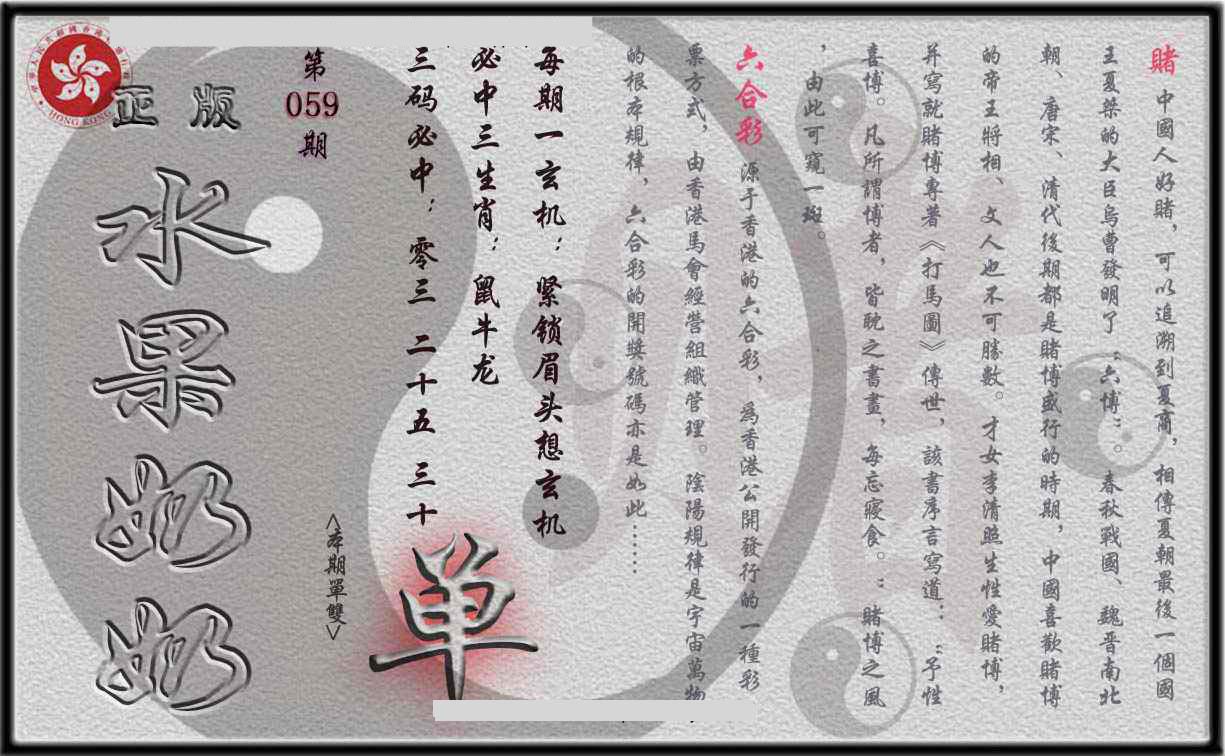 賭 中國人好賭，可以追溯到夏商，相傳夏朝最後一個國
王夏桀的大臣烏曹發明了“六博”。春秋戰國、魏晋南北
朝、唐宋、清代後期都是賭博盛行的時期，中國喜歡賭博
的帝王將相、文人也不可勝數。才女李清照生性愛賭博，
并寫就賭博專著《打馬圖》傳世，該書序言寫道：“予性
喜博。凡所謂博者，皆耽之書畫，每忘寢食。”賭博之風
，由此可窺一斑。
六合彩 源于香港的六合彩，為香港公開發行的一種彩
票方式，由香港馬會經營組織管理。陰陽規律是宇宙萬物
的根本規律，六合彩的開獎號碼亦是如此……
每期一玄机：緊锁眉头想玄机
必中三生肖：鼠牛龙
三码必中：零三 二十五 三十
单
<本期單雙>
第
059
期
正版
水果奶奶
HONG KONG